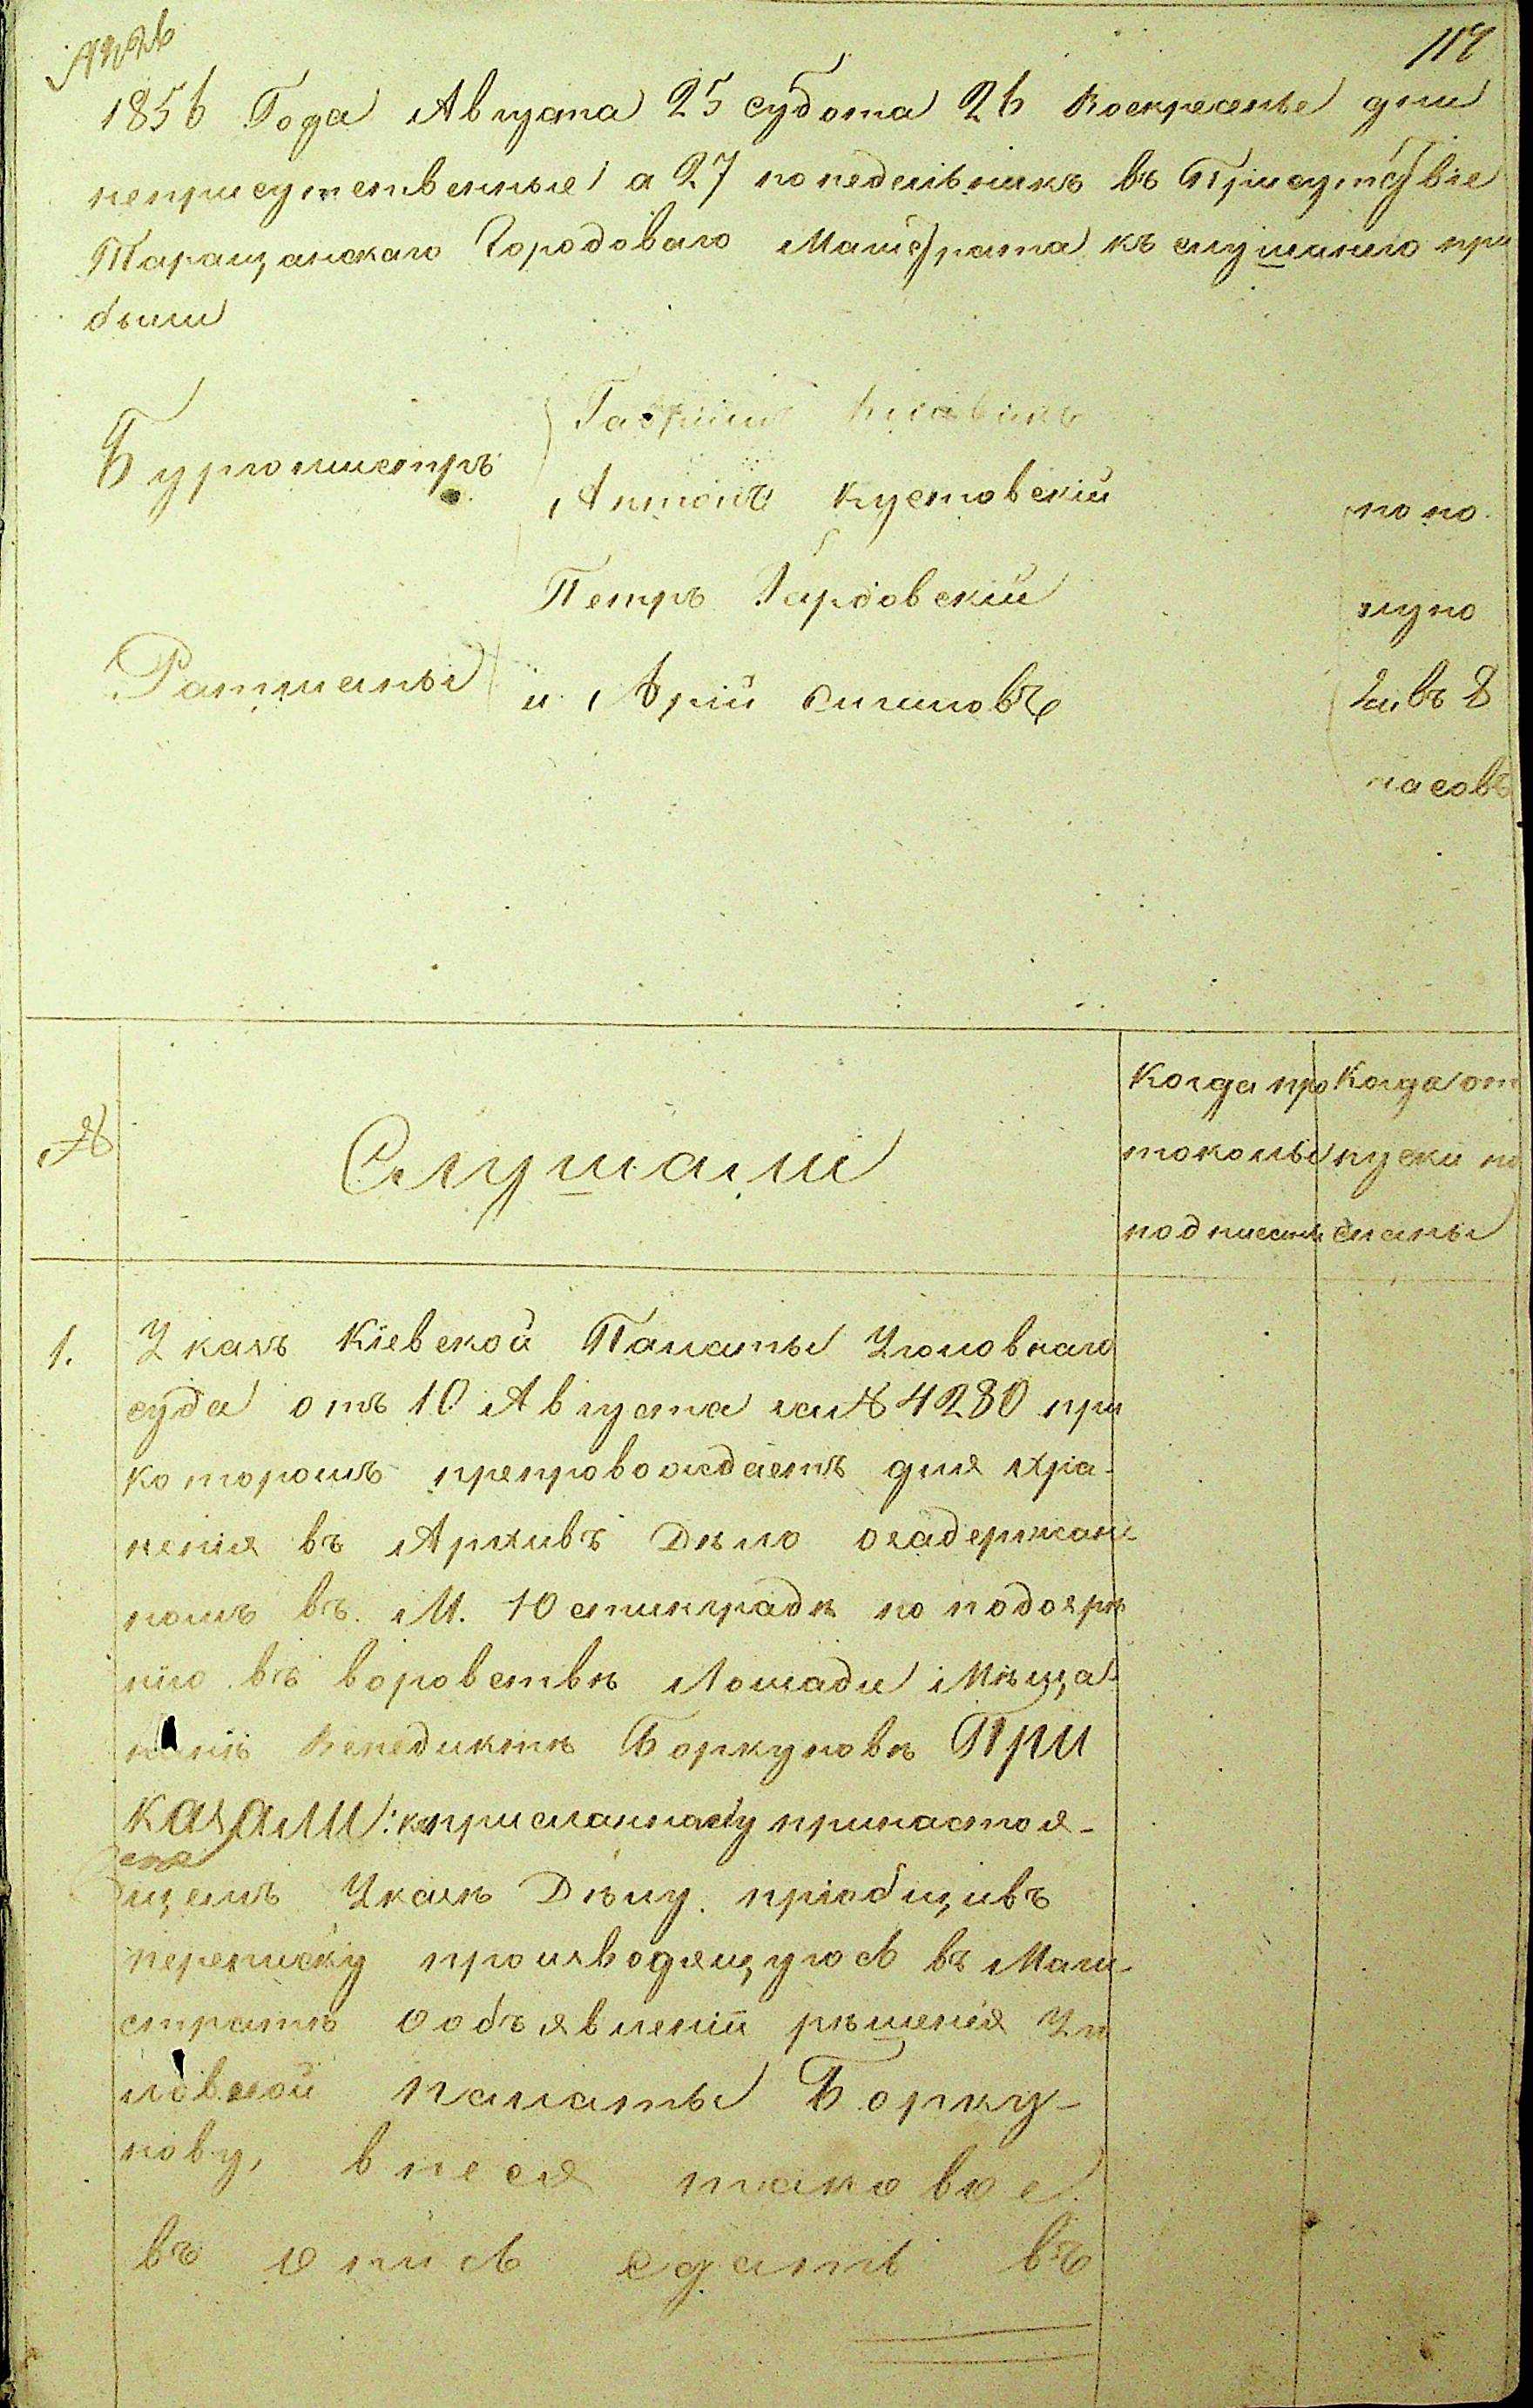 1856 Года Августа 25 субота 26 Воскресенье дни
неприсутственные а 27 понедельникъ въ Присутствіе
Таращанскаго Городоваго Магистрата къ слушанию при
были
Гаврiилъ
Бургомистръ
Антонъ Кустовскій
по по
Петръ
луно
Ратманы
и
чи въ 8
часовъ
№
Слушали
Когда про
токолы
подписаны
Когда от
пуски по
сланы
1.
Указъ Кіевской Палаты Уголовнаго
суда отъ 10 Августа за № 4280 при
которомъ препровождаетъ для хра-
ненія въ Архивѣ Дѣло о задержан-
номъ въ М. Юстинградѣ по подозрѣ
нію въ воровствѣ Лошади Мѣща-
нинѣ Венедиктѣ Боркуновѣ При
казали: къ присланному при настоя-
щемъ Указѣ Дѣлу пріобщивъ
переписку производящуюсь въ Маги-
стратѣ о объявленіи рѣшенія Уго
ловной палаты Борку-
нову, внеся таковое
въ опись сдать въ